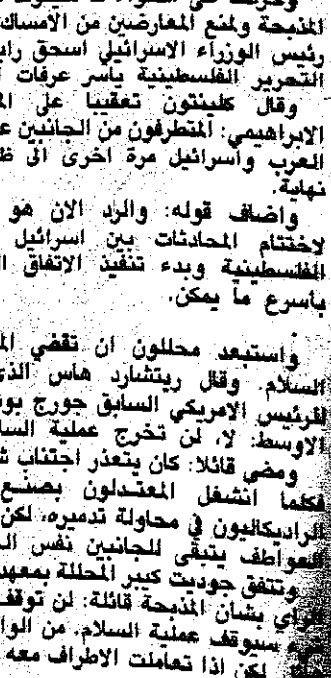 المذبحة ولمنع المعارضين من الامساك
رئيس الوزراء الاسرائيلي اسحق راب
التحرير الفلسطينية ياسر عرفات
وقال كلينتون تعقيبا على
الابراهيمي: المتطرفون من الجانبين
العرب واسرائيل مرة اخرى الى
نهاية.
واضاف قوله: والرد الان هو
لاختتام المحادثات بين اسرائيل
الفلسطينية وبدء تنفيذ الاتفاق
بأسرع ما يمكن.
واستبعد محللون ان تقضي
السلام. وقال ريتشارد هاس
للرئيس الامريكي السابق جورج
الاوسط: لا، لن تخرج عملية
ومضى قائلا: كان يتعذر اجتناب
فكلما انشغل المعتدلون بصنع
الراديكاليون في محاولة تدميره، لكن
العواطف يتبقى للجانبين نفس
وتتفق جوديت كيبر المحللة بمعهد
الرأي بشأن المذبحة قائلة: لن توقف
سيوقف عملية السلام. من
لكن اذا تعاملت الاطراف معه